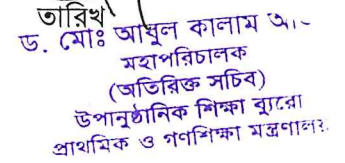 তারিখ
ড. মোঃ আবুল কালাম
মহাপরিচালক
(অতিরিক্ত সচিব)
উপানুষ্ঠানিক শিক্ষা ব্যুরো
প্রাথমিক ও গণশিক্ষা মন্ত্রণালয়